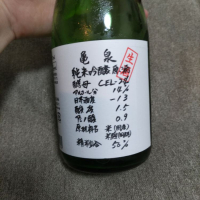 亀泉
純米吟醸原酒
生
酵母 CEL-24
アルコール分 14%
日本酒度 -13
酸度 1.5
アミノ酸 0.9
原材料名 米(国産)
精米歩合 50%